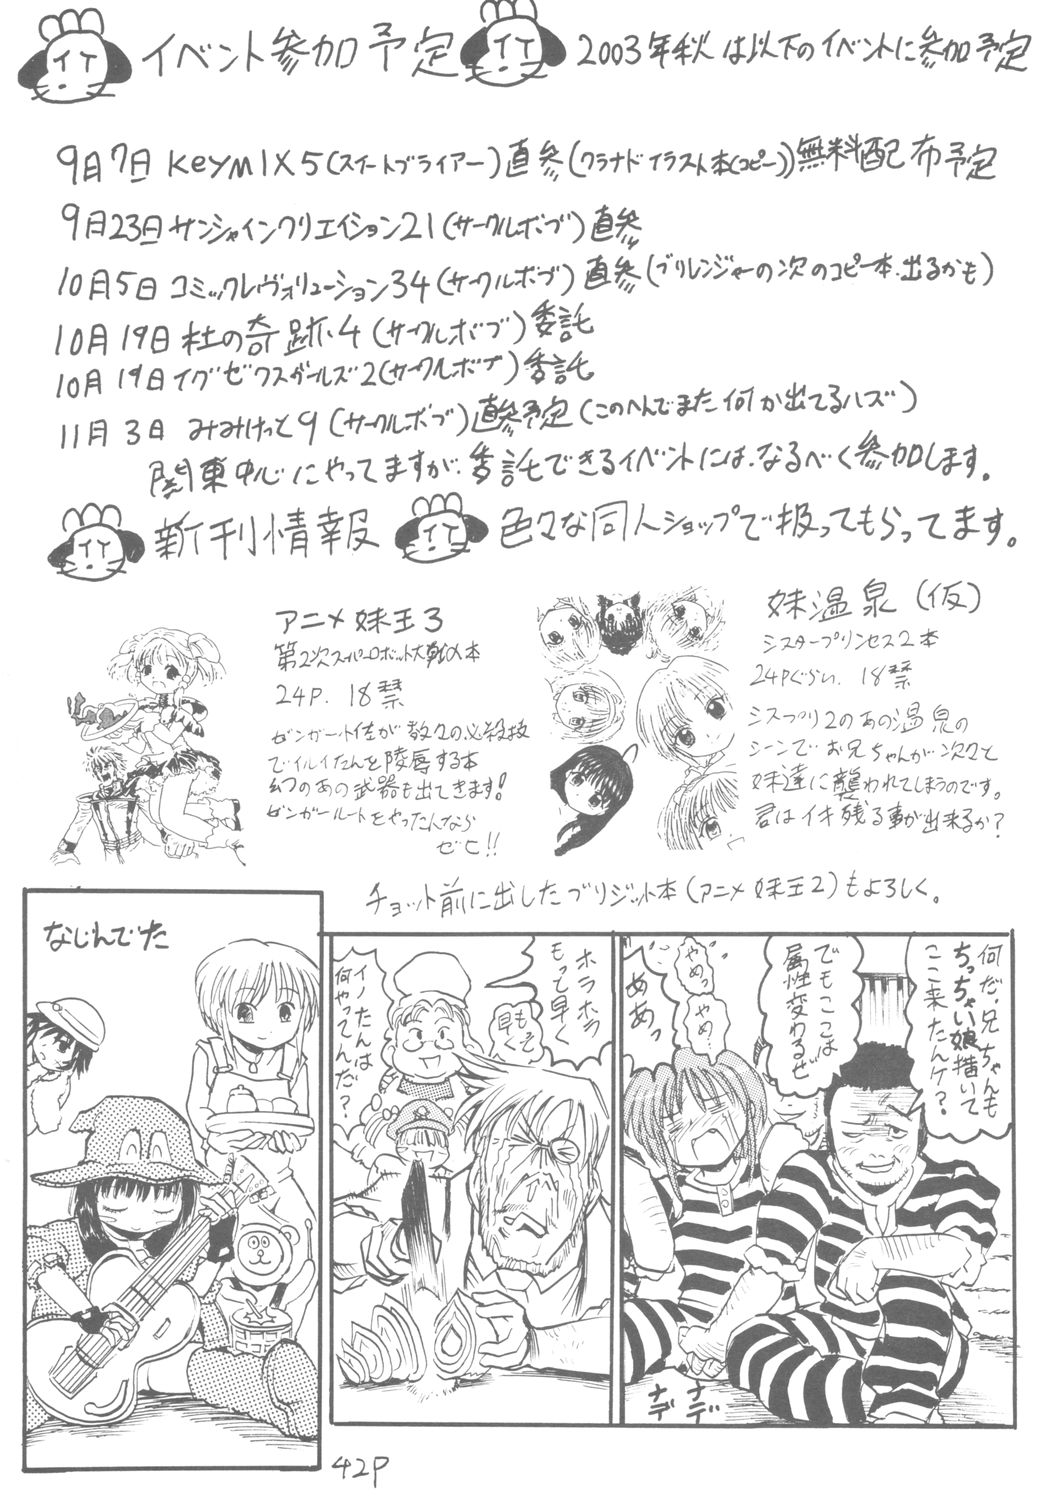 イベント参加予定
2003年秋は以下のイベントに参加予定
9月7日 KeyMIX5(スイートブライアー)直参(クラナドイラスト本(コピー))無料配布予定
9月23日 サンシャインクリエイション21(サークルボブ)直参
10月5日 コミックレヴォリューション34(サークルボブ)直参(ブリレンジャーの次のコピー本、出るかも)
10月19日 杜の奇跡4(サークルボブ)委託
10月19日 イグゼクスガールズ2(サークルボブ)委託
11月3日 みみけっと9(サークルボブ)直参予定(このへんでまた何か出てるハズ)
関東中心にやってますが、委託できるイベントには、なるべく参加します。
新刊情報
色々な同人ショップで扱ってもらってます。
アニメ妹王3
第2次スーパーロボット大戦α本
24P. 18禁
ゼンガー少佐が数々の必殺技
でイルイたんを陵辱する本
幻のあの武器も出てきます!
ゼンガールートをやったんなら
ゼヒ!!
妹温泉(仮)
シスタープリンセス2本
24Pぐらい. 18禁
シスプリ2のあの温泉の
シーンでお兄ちゃんが次々と
妹達に襲われてしまうのです。
君はイキ残る事が出来るか?
チョット前に出したブリジット本(アニメ妹王2)もよろしく。
何だ、兄ちゃんも
ちっちゃい娘描いて
ここ来たんケ?
でもここは
属性変わるぜ
やめっ
やめ…
ああっ
ナデ
ナデ
ホラホラ
もって早く
もって
早く
イノたんは
何やってんだ?
なじんでた
42P